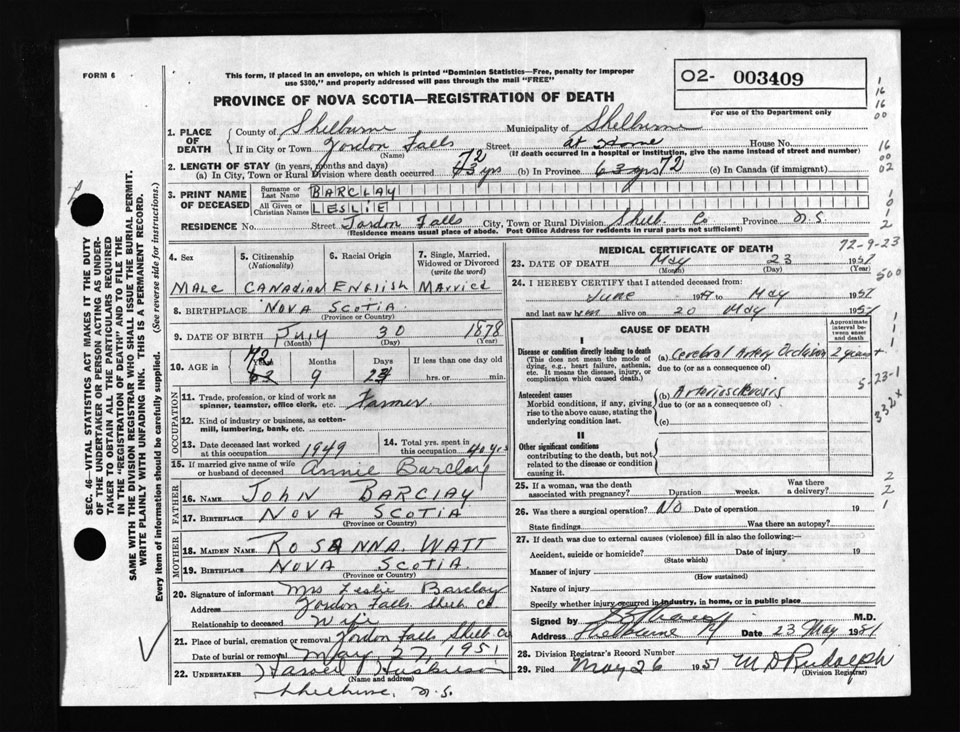 FORM 6
This form, if placed in an envelope, on which is printed "Dominion Statistics—Free, penalty for improper
use $300," and properly addressed will pass through the mail "FREE"
02- 003409
For use of the Department only
PROVINCE OF NOVA SCOTIA—REGISTRATION OF DEATH
SEC. 46—VITAL STATISTICS ACT MAKES IT THE DUTY
OF THE UNDERTAKER OR PERSON ACTING AS UNDER-
TAKER TO OBTAIN ALL THE PARTICULARS REQUIRED
IN THE "REGISTRATION OF DEATH" AND TO FILE THE
SAME WITH THE DIVISION REGISTRAR WHO SHALL ISSUE THE BURIAL PERMIT.
WRITE PLAINLY WITH UNFADING INK. THIS IS A PERMANENT RECORD.
Every item of information should be carefully supplied. (See reverse side for instructions.)
1. PLACE OF DEATH
County of Shelburne Municipality of Shelburne
If in City or Town Jordon Falls Street at Home House No.
(Name) (If death occurred in a hospital or institution, give the name instead of street and number)
2. LENGTH OF STAY (in years, months and days)
(a) In City, Town or Rural Division where death occurred 72 63 yrs (b) In Province 63 yrs 72 (c) In Canada (if immigrant)
3. PRINT NAME OF DECEASED
Surname or Last Name BARCLAY
All Given or Christian Names LESLIE
RESIDENCE No. Street Jordon Falls City, Town or Rural Division Shelb. Co Province N.S.
(Residence means usual place of abode. Post Office Address for residents in rural parts not sufficient)
4. Sex 5. Citizenship (Nationality) 6. Racial Origin 7. Single, Married, Widowed or Divorced (write the word)
MALE CANADIAN ENGLISH MARRIED
8. BIRTHPLACE NOVA SCOTIA.
(Province or Country)
9. DATE OF BIRTH July 30 1878
(Month) (Day) (Year)
10. AGE in Years Months Days If less than one day old
72 62 9 23 hrs. or min.
OCCUPATION
11. Trade, profession, or kind of work as
spinner, teamster, office clerk, etc. Farmer
12. Kind of industry or business, as cotton-
mill, lumbering, bank, etc.
13. Date deceased last worked
at this occupation 1949
14. Total yrs. spent in
this occupation 40 yrs
15. If married give name of wife
or husband of deceased Annie Barclay
FATHER
16. NAME JOHN BARCLAY
17. BIRTHPLACE NOVA SCOTIA
(Province or Country)
MOTHER
18. MAIDEN NAME ROSANNA. WATT
19. BIRTHPLACE NOVA SCOTIA.
(Province or Country)
20. Signature of informant Mrs Leslie Barclay
Address Jordon Falls Shelb. Co
Relationship to deceased Wife
21. Place of burial, cremation or removal Jordon Falls Shelb. Co
Date of burial or removal May 27, 1951
22. UNDERTAKER
(Name and address)
Shelburne, N.S.
MEDICAL CERTIFICATE OF DEATH
72-9-23
23. DATE OF DEATH May 23 1951
(Month) (Day) (Year)
24. I HEREBY CERTIFY that I attended deceased from:
June to May 1951
and last saw him alive on 20 May 1951
500
CAUSE OF DEATH
Approximate interval between onset and death
I
Disease or condition directly leading to death
(This does not mean the mode of
dying, e.g., heart failure, asthenia,
etc. It means the disease, injury, or
complication which caused death.)
(a) Cerebral Artery Occlusion 2 years +
due to (or as a consequence of)
5-23-1
Antecedent causes
Morbid conditions, if any, giving
rise to the above cause, stating the
underlying condition last.
(b) Arteriosclerosis
due to (or as a consequence of)
(c)
332x
II
Other significant conditions
contributing to the death, but not
related to the disease or condition
causing it.
25. If a woman, was the death
associated with pregnancy? Duration weeks. Was there
a delivery?
26. Was there a surgical operation? NO Date of operation 19
State findings Was there an autopsy?
27. If death was due to external causes (violence) fill in also the following:—
Accident, suicide or homicide? Date of injury 19
(State which)
Manner of injury
(How sustained)
Nature of injury
Specify whether injury occurred in industry, in home, or in public place
Signed by M.D.
Address Shelburne Date 23 May 1951
28. Division Registrar's Record Number
29. Filed May 26 1951 M D Rudolph
(Division Registrar)